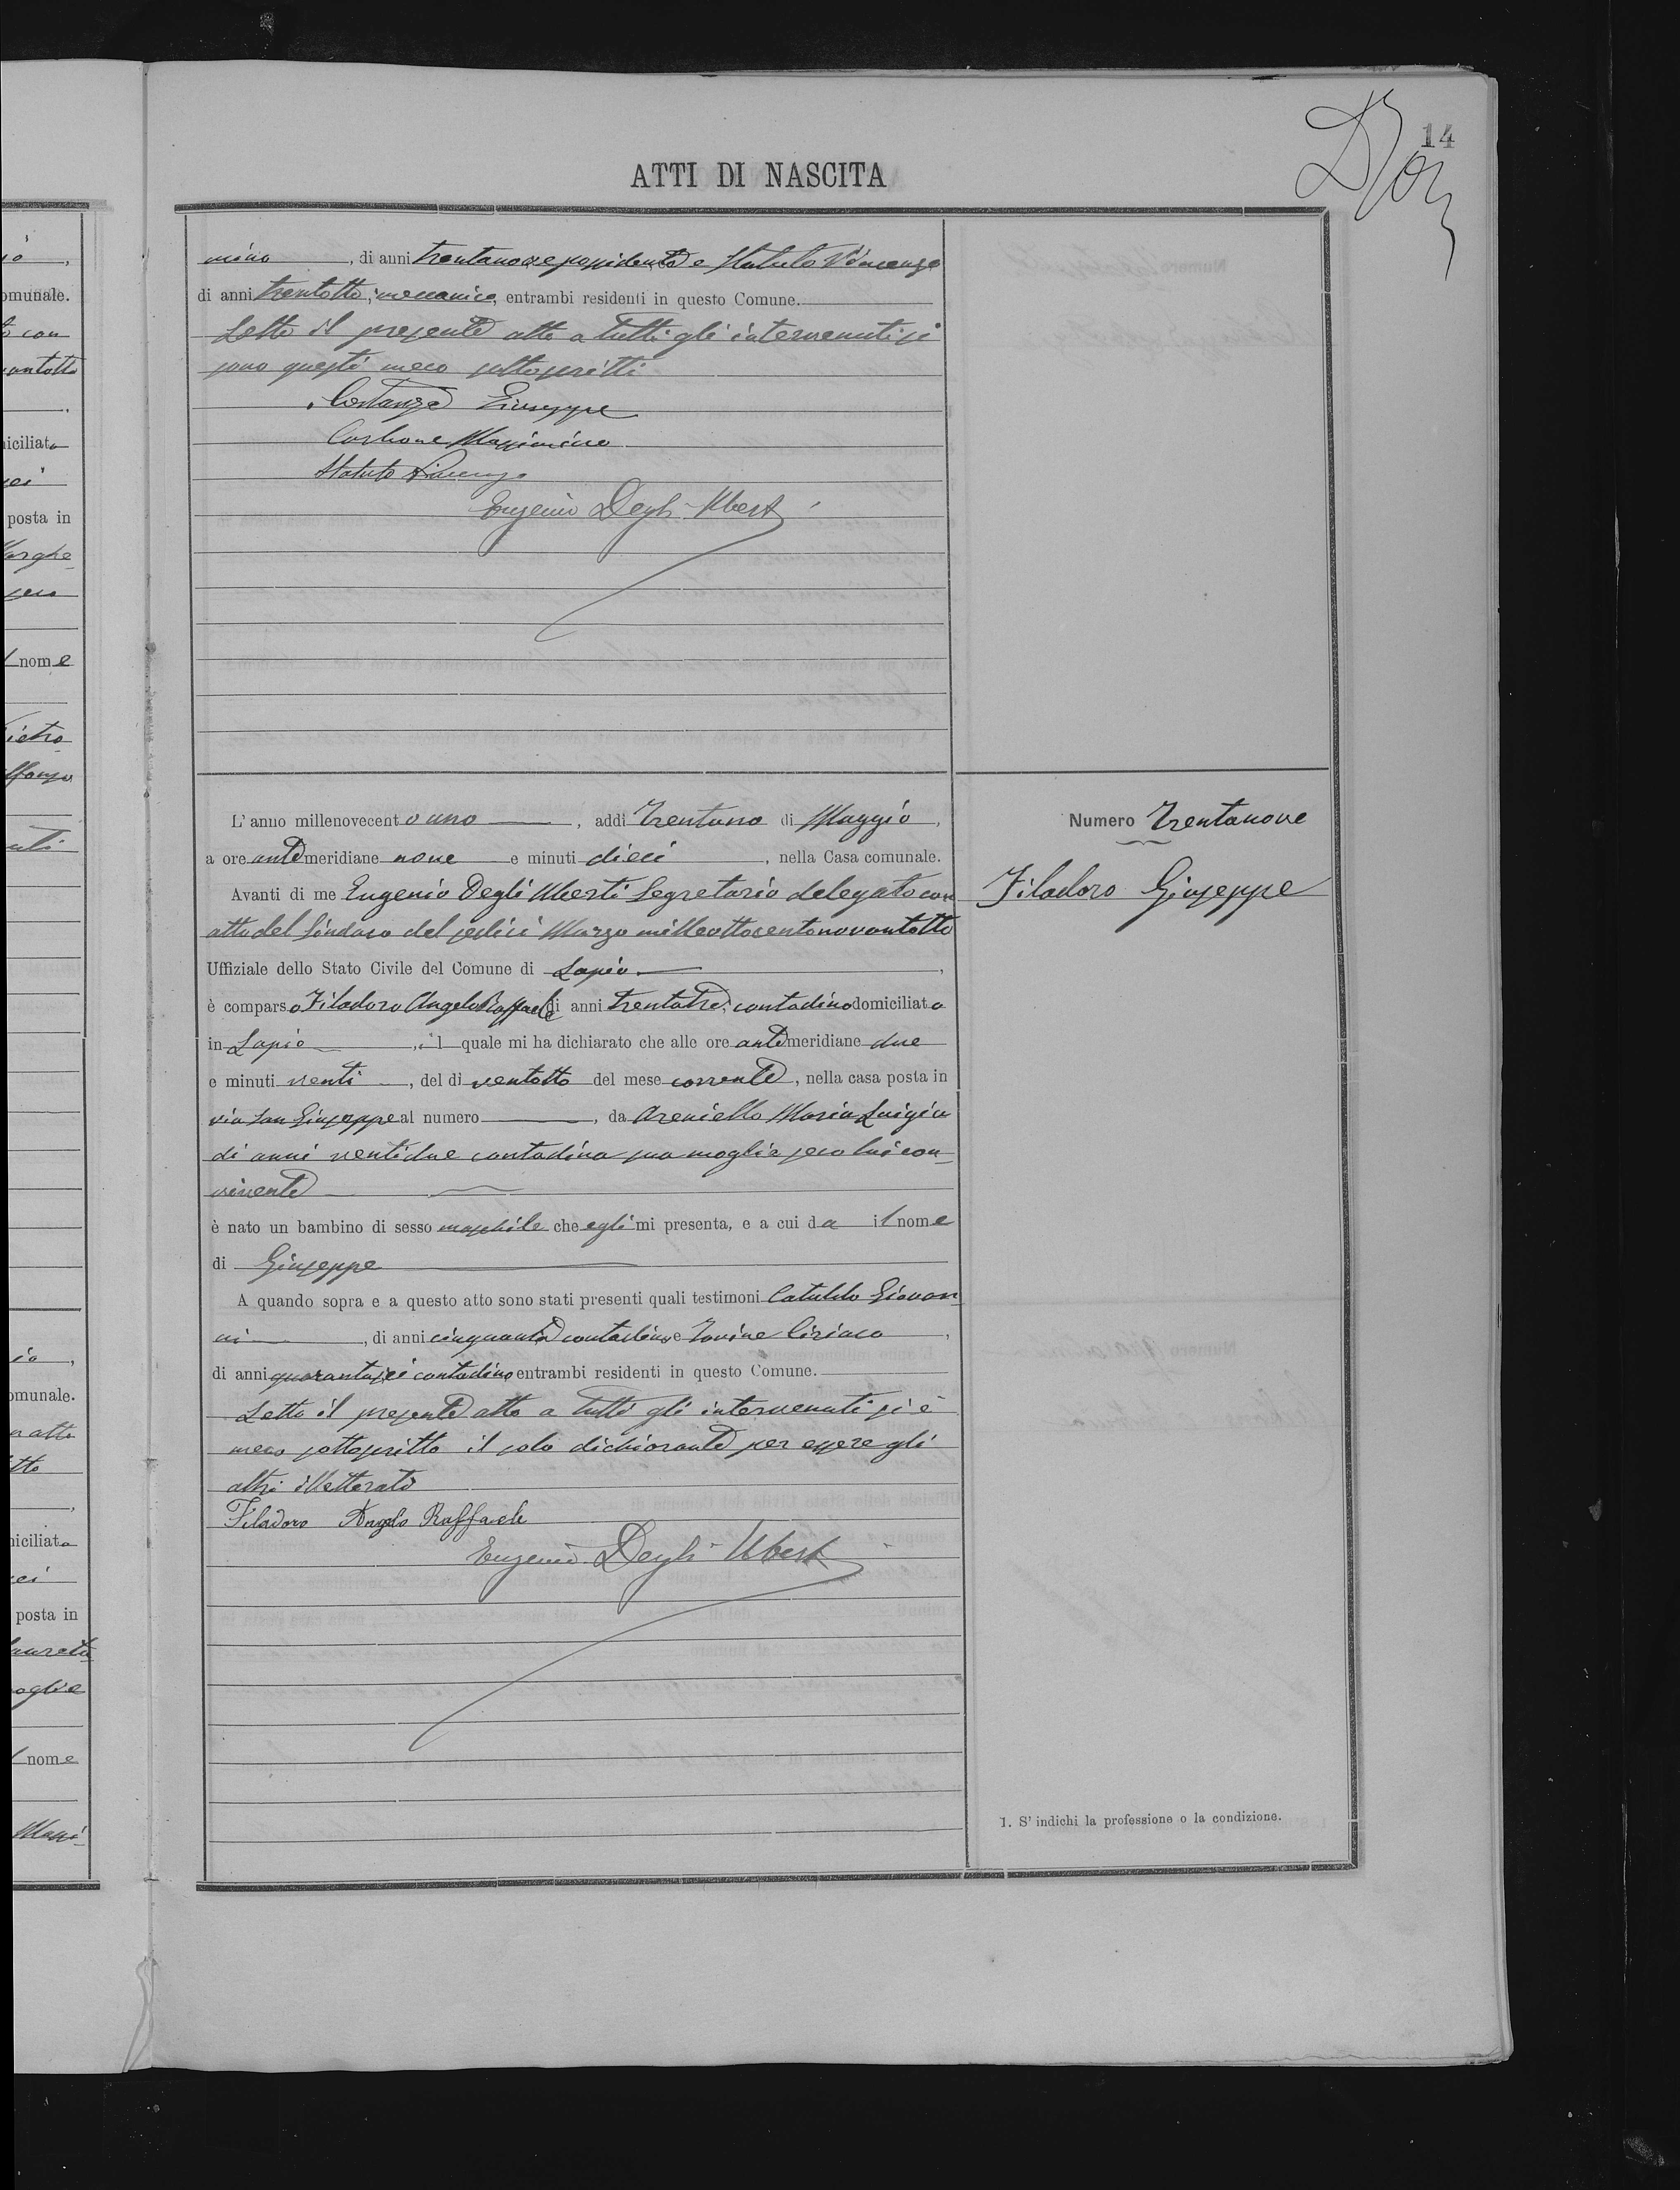 14
ATTI DI NASCITA
mino, di anni trentanove possidente e Statuto Vincenzo
di anni trentotto, meccanico, entrambi residenti in questo Comune.
Letto il presente atto a tutti gli intervenuti si
sono questi meco sottoscritti
Costanza Giuseppe
Carbone Massimino
Statuto Vincenzo
Eugenio Degli Uberti
L'anno millenovecento uno, addì Trentuno di Maggio,
a ore antemeridiane nove e minuti dieci, nella Casa comunale.
Avanti di me Eugenio Degli Uberti Segretario delegato con
atto del Sindaco del sedici Marzo milleottocentonovantotto
Uffiziale dello Stato Civile del Comune di Lapio,
è comparso Filadoro Angelo Raffaele di anni trentatre, contadino domiciliato
in Lapio, il quale mi ha dichiarato che alle ore antemeridiane due
e minuti venti, del dì ventotto del mese corrente, nella casa posta in
via San Giuseppe al numero, da Areniello Maria Luigia
di anni ventidue contadina sua moglie seco lui con-
vivente
è nato un bambino di sesso maschile che egli mi presenta, e a cui da il nome
di Giuseppe
A quando sopra e a questo atto sono stati presenti quali testimoni Cataldo Giovan-
ni, di anni cinquanta contadino e Iovine Ciriaco,
di anni quarantasei contadino entrambi residenti in questo Comune.
Letto il presente atto a tutti gli intervenuti si è
meco sottoscritto il solo dichiarante per essere gli
altri illetterati
Filadoro Angelo Raffaele
Eugenio Degli Uberti
Numero Trentanove
Filadoro Giuseppe
1. S'indichi la professione o la condizione.